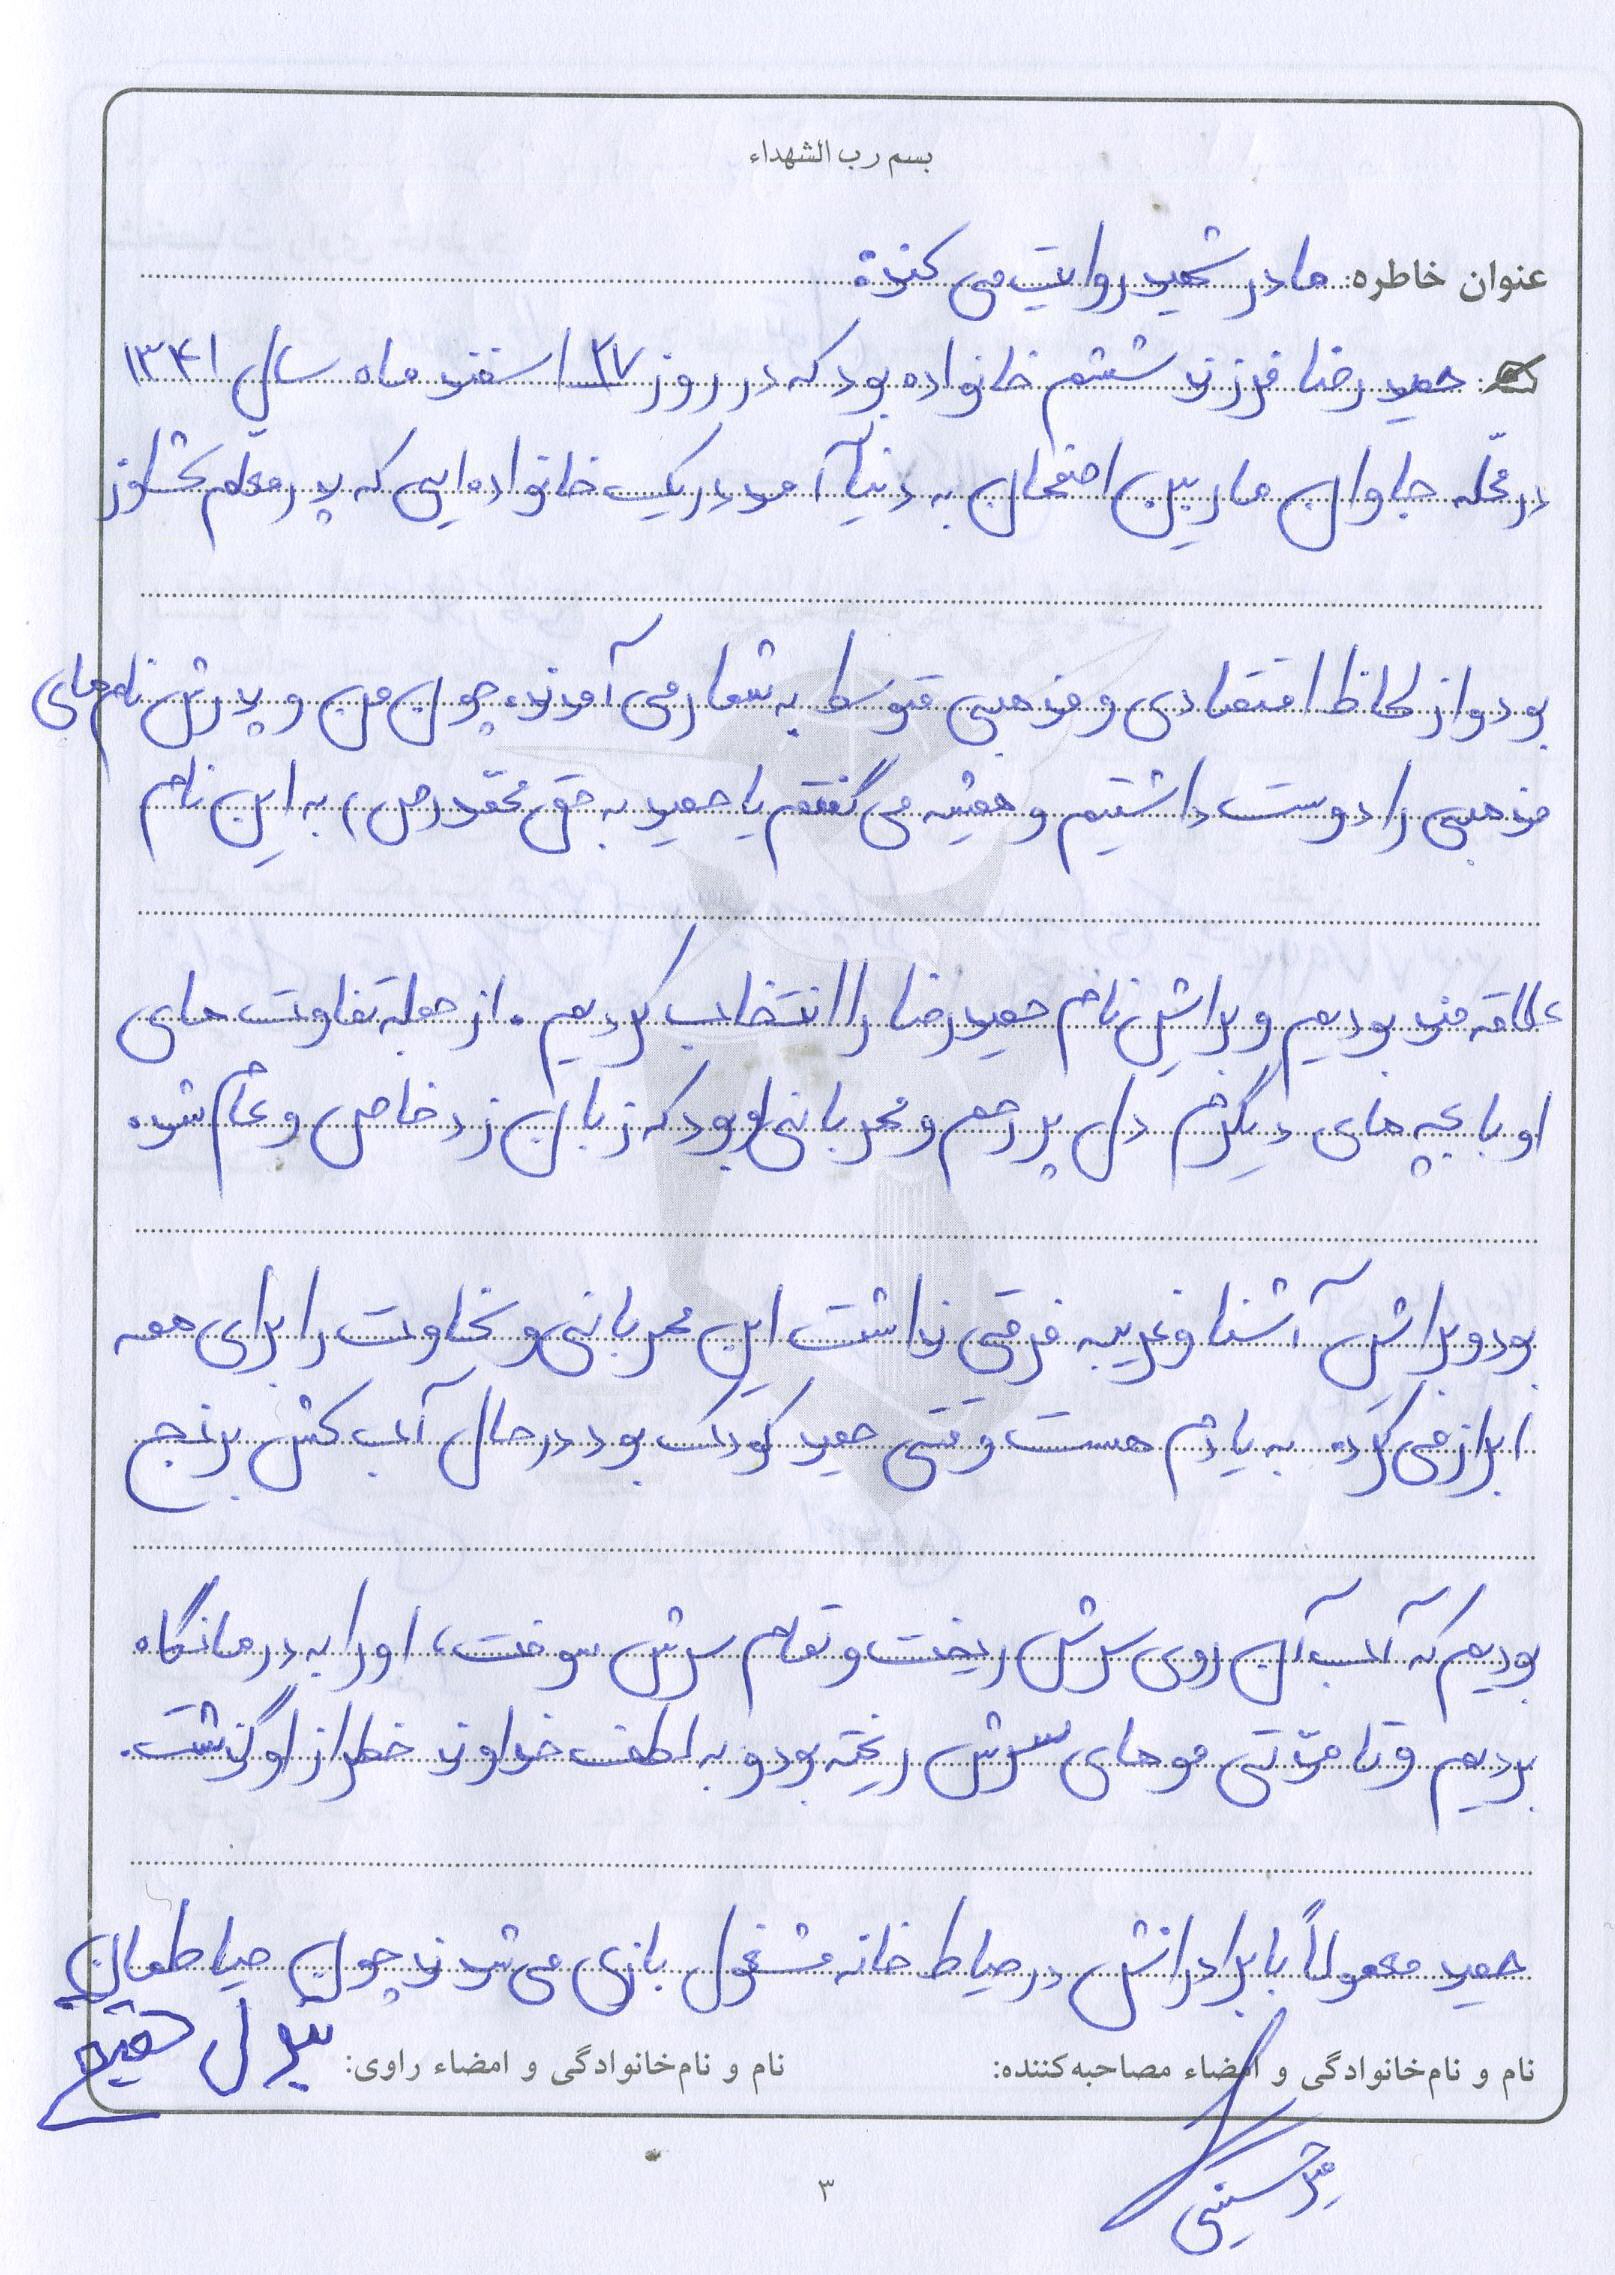 بسم رب الشهداء
عنوان خاطره: مادر شهید روایت می کند:
حمید رضا فرزند ششم خانواده بود که در روز ۲۷ اسفند ماه سال ۱۳۴۱
در محلّه جاوان ماربین اصفهان به دنیا آمد در یک خانواده ایی که پدر معلم کشاورز
بود و از لحاظ اقتصادی و مذهبی متوسط به شمار می آمدند، چون من و پدرش نام های
مذهبی را دوست داشتیم و همیشه می گفتیم یا حمید به حق محمّد (ص) به این نام
علاقه مند بودیم و براش نام حمید رضا را انتخاب کردیم. از جمله تفاوت های
او با بچه های دیگرم دل پر رحم و مهربانی او بود که زبان زد خاص و عام شده
بود و براش آشنا و غریبه فرقی نداشت این مهربانی و سخاوت را برای همه
ابراز می کرد. به یادم هست وقتی حمید کودک بود در حال آب کش برنج
بودیم که آب آن روی سرش ریخت و تمام سرش سوخت، او را به درمانگاه
بردیم و تا مدّتی موهای سرش ریخته بود و به لطف خداوند خطر از او گذشت.
حمید معمولاً با برادرانش در حیاط خانه مشغول بازی می شدند چون حیاطمان
نام و نام‌خانوادگی و امضاء مصاحبه‌کننده: نام و نام‌خانوادگی و امضاء راوی: بتول
میرحسینی
۳